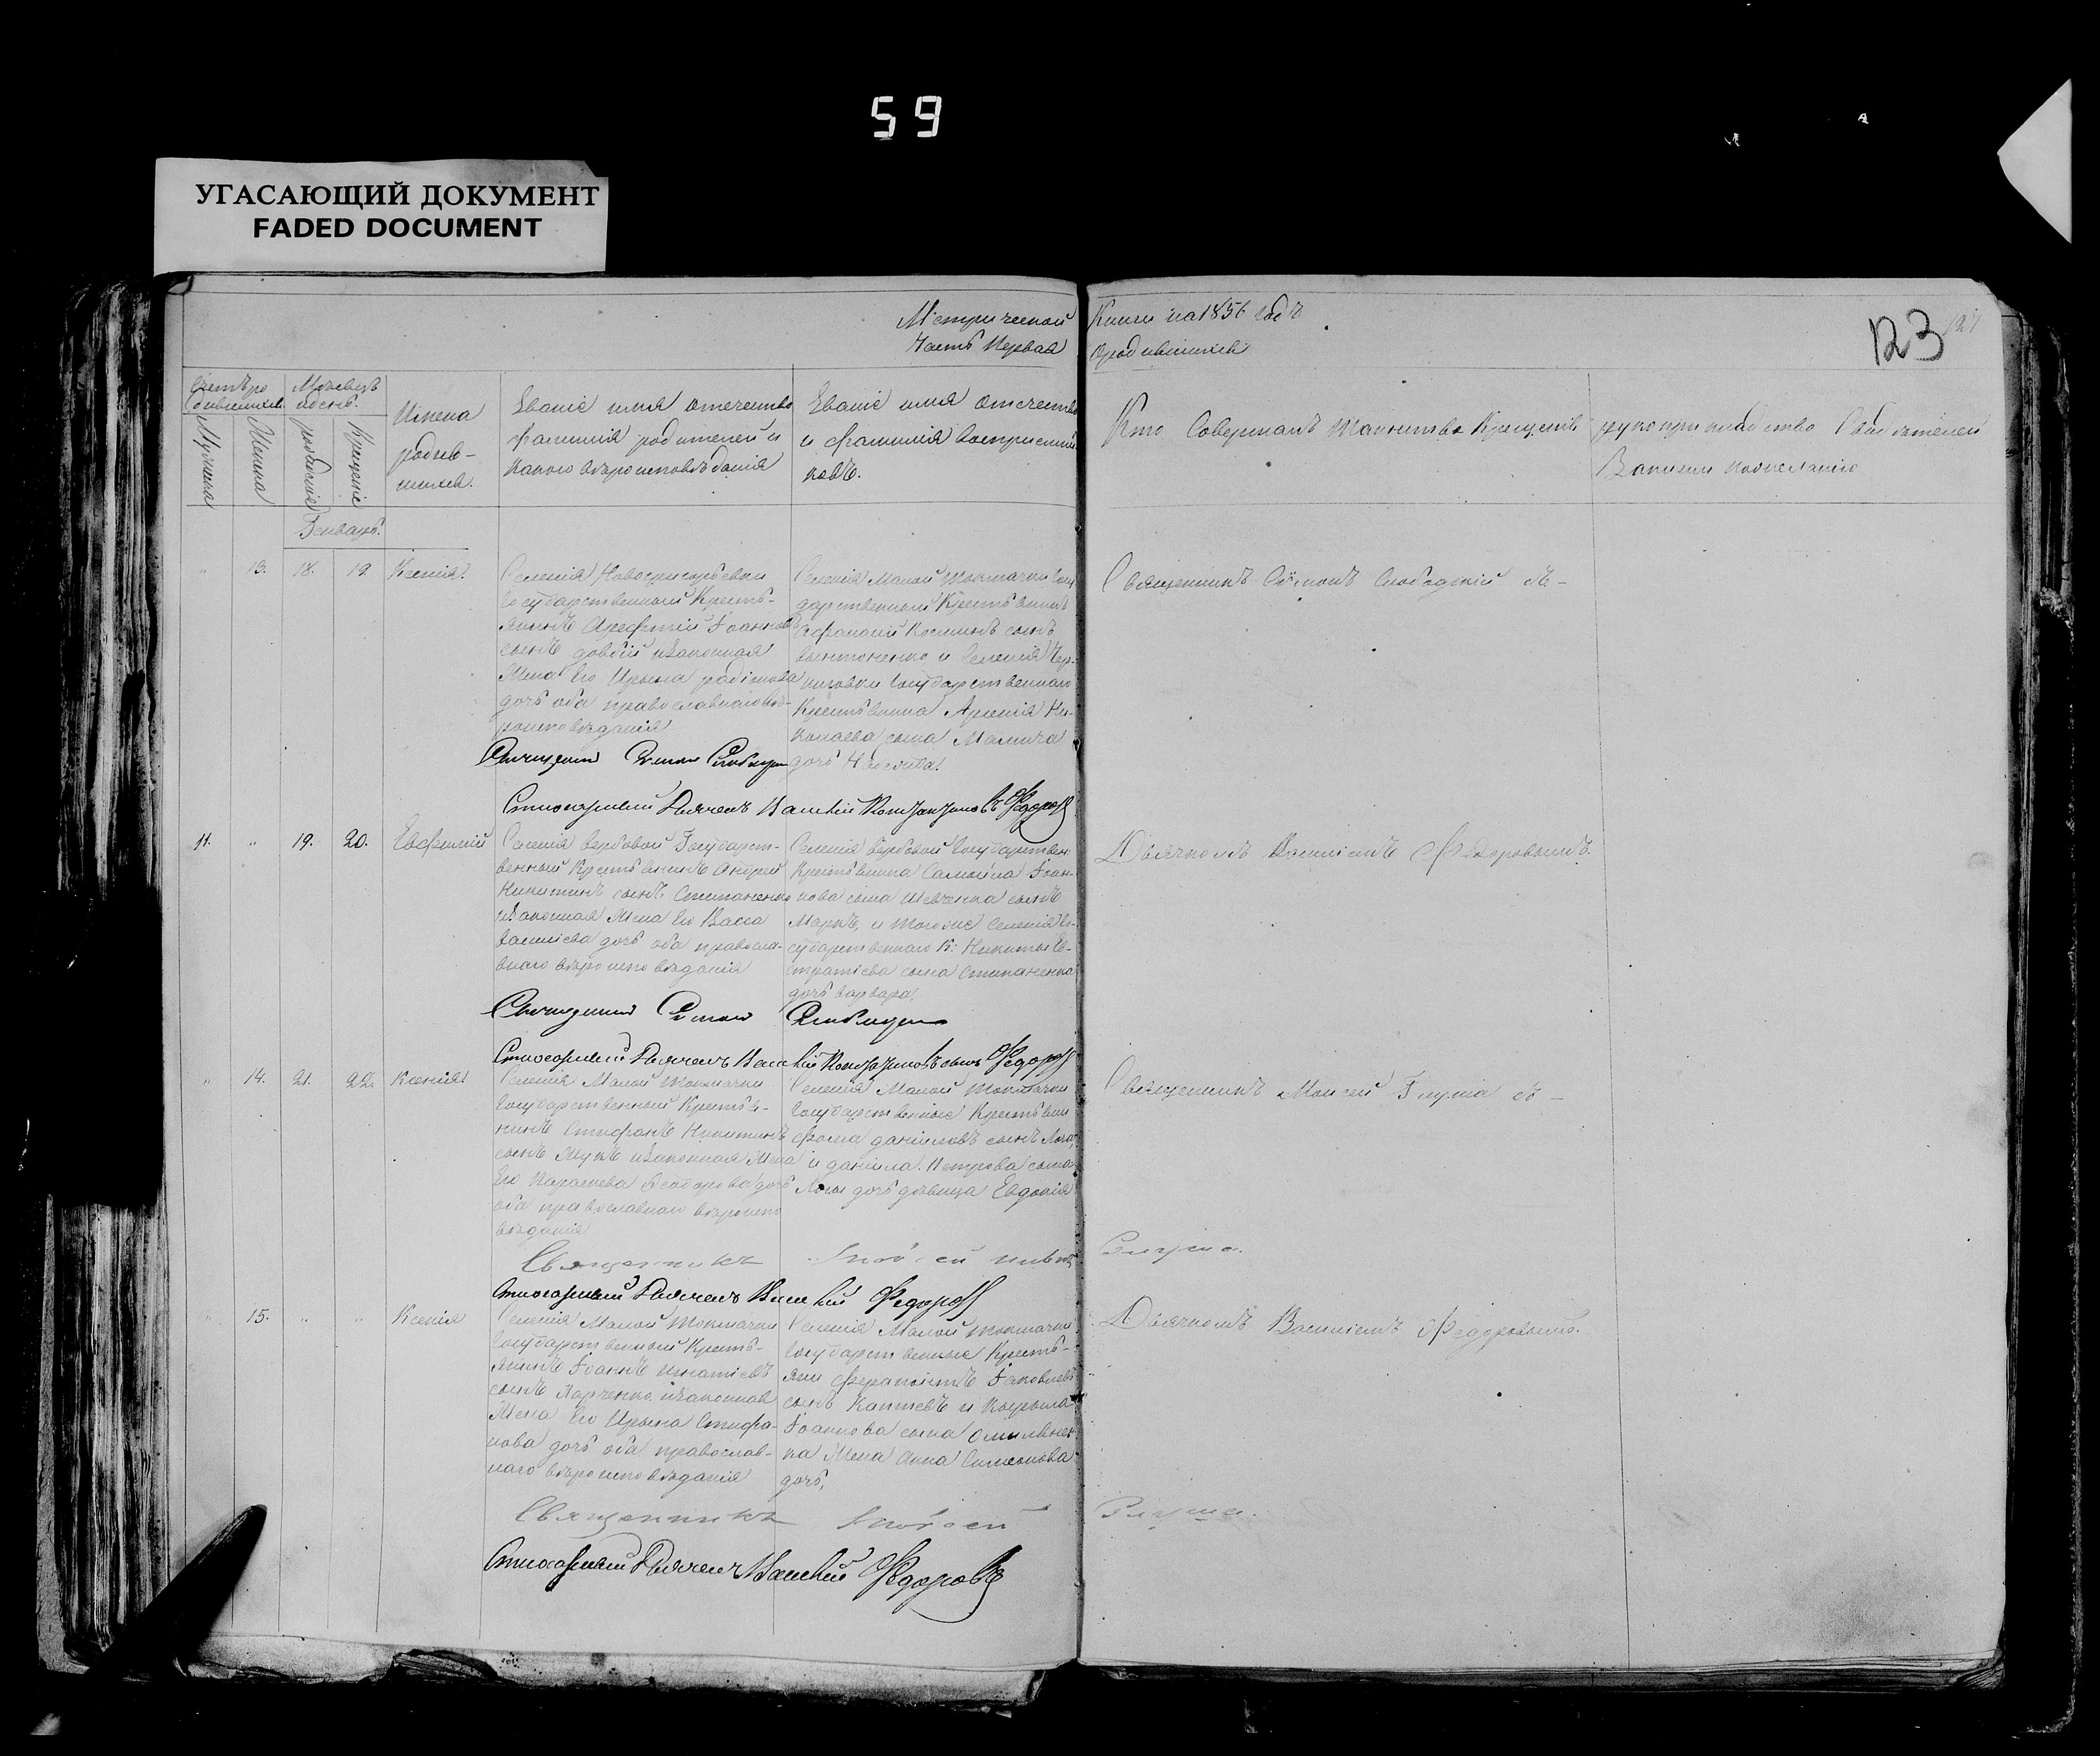 59
УГАСАЮЩИЙ ДОКУМЕНТ
FADED DOCUMENT
Метрической
Часть Первая
Книги на 1856 годъ
о родившихся
123
127
Счетъ ро
дившихся.
Мужеска
Женска
Мѣсяцъ
и день.
рожденія
Крещеніе
Имена
родив-
шихся.
Званіе имя отечество
фамилія родителей и
какого вѣроисповѣданія
Званіе имя отечество
и фамилія восприемни
ковъ.
Кто Совершалъ Таинство Крещенія
рукоприкладство Свидѣтелей
Записи по желанію
Январь.
13. 18. 19. Ксенія.
Селенія Новогригорьевки
государственный Кресть-
янинъ Арефтій Іоанновъ
сынъ довбій и законная
Жена Его Ирына
дочь оба православнаго вѣ-
роисповѣданія
Селенія Малой Токмачки Госу
дарственный Крестьянинъ
Афанасій Косминъ сынъ
и Селенія Чер-
ниговки Государственнаго
Крестьянина Арсенія Ни-
колаева сына Мамича
дочь
Священникъ Симонъ Слободскій съ -
Священникъ Симонъ
Стихарный Дьячекъ Василій Константиновъ Федоровъ
11. " 19. 20. Евфимій
Селенія Вербовой Государст-
венный Крестьянинъ Андрей
Никитинъ сынъ Степаненко
и Законная Жена Его Васса
Василіева дочь оба правосла-
внаго вѣроисповѣданія
Селенія Вербовой Государствен.
Крестьянина Самойла Іоан-
нова сына Шевченка сынъ
Маркъ, и тогоже Селенія Го-
сударственнаго К: Никиты Ев-
стратіева сына Степаненка
дочь Варвара.
Дьячкомъ Василіемъ Федоровымъ.
Священникъ Симонъ
Стихарный Дьячекъ Василій Константиновъ сынъ Федоровъ
" 14. 21. 22. Ксенія
Селенія Малой Токмачки
Государственный Крестья-
нинъ Стефанъ Никитинъ
сынъ Жукъ и законная Жена
Его Параскева Феодорова дочь
оба православнаго вѣроиспо
вѣданія
Селенія Малой Токмачки
Государственные Крестьяни
Фома даніиловъ сынъ
и даніила Петрова сына
дочь дѣвица Евдокія
Священникъ Моисей Глуша съ -
Священникъ
Глуша.
Стихарный Дьячекъ Василій Федоровъ
" 15. " " Ксенія
Селенія Малой Токмачки
Государственный Кресть-
янинъ Іоаннъ Игнатіевъ
сынъ Харченко и законная
Жена Его Ирына Стефа-
нова дочь оба православ-
наго вѣроисповѣданія
Селенія Малой Токмачки
Государственные Кресть-
яни Ферапонтъ Іаковлевъ
сынъ Каптевъ и Кырыла
Іоаннова сына Омельянен-
ка Жена Анна Симеонова
дочь,
Дьячкомъ Василіемъ Федоровымъ.
Священникъ Моѵсей
Глуша.
Стихарный Дьячекъ Василій Федоровъ